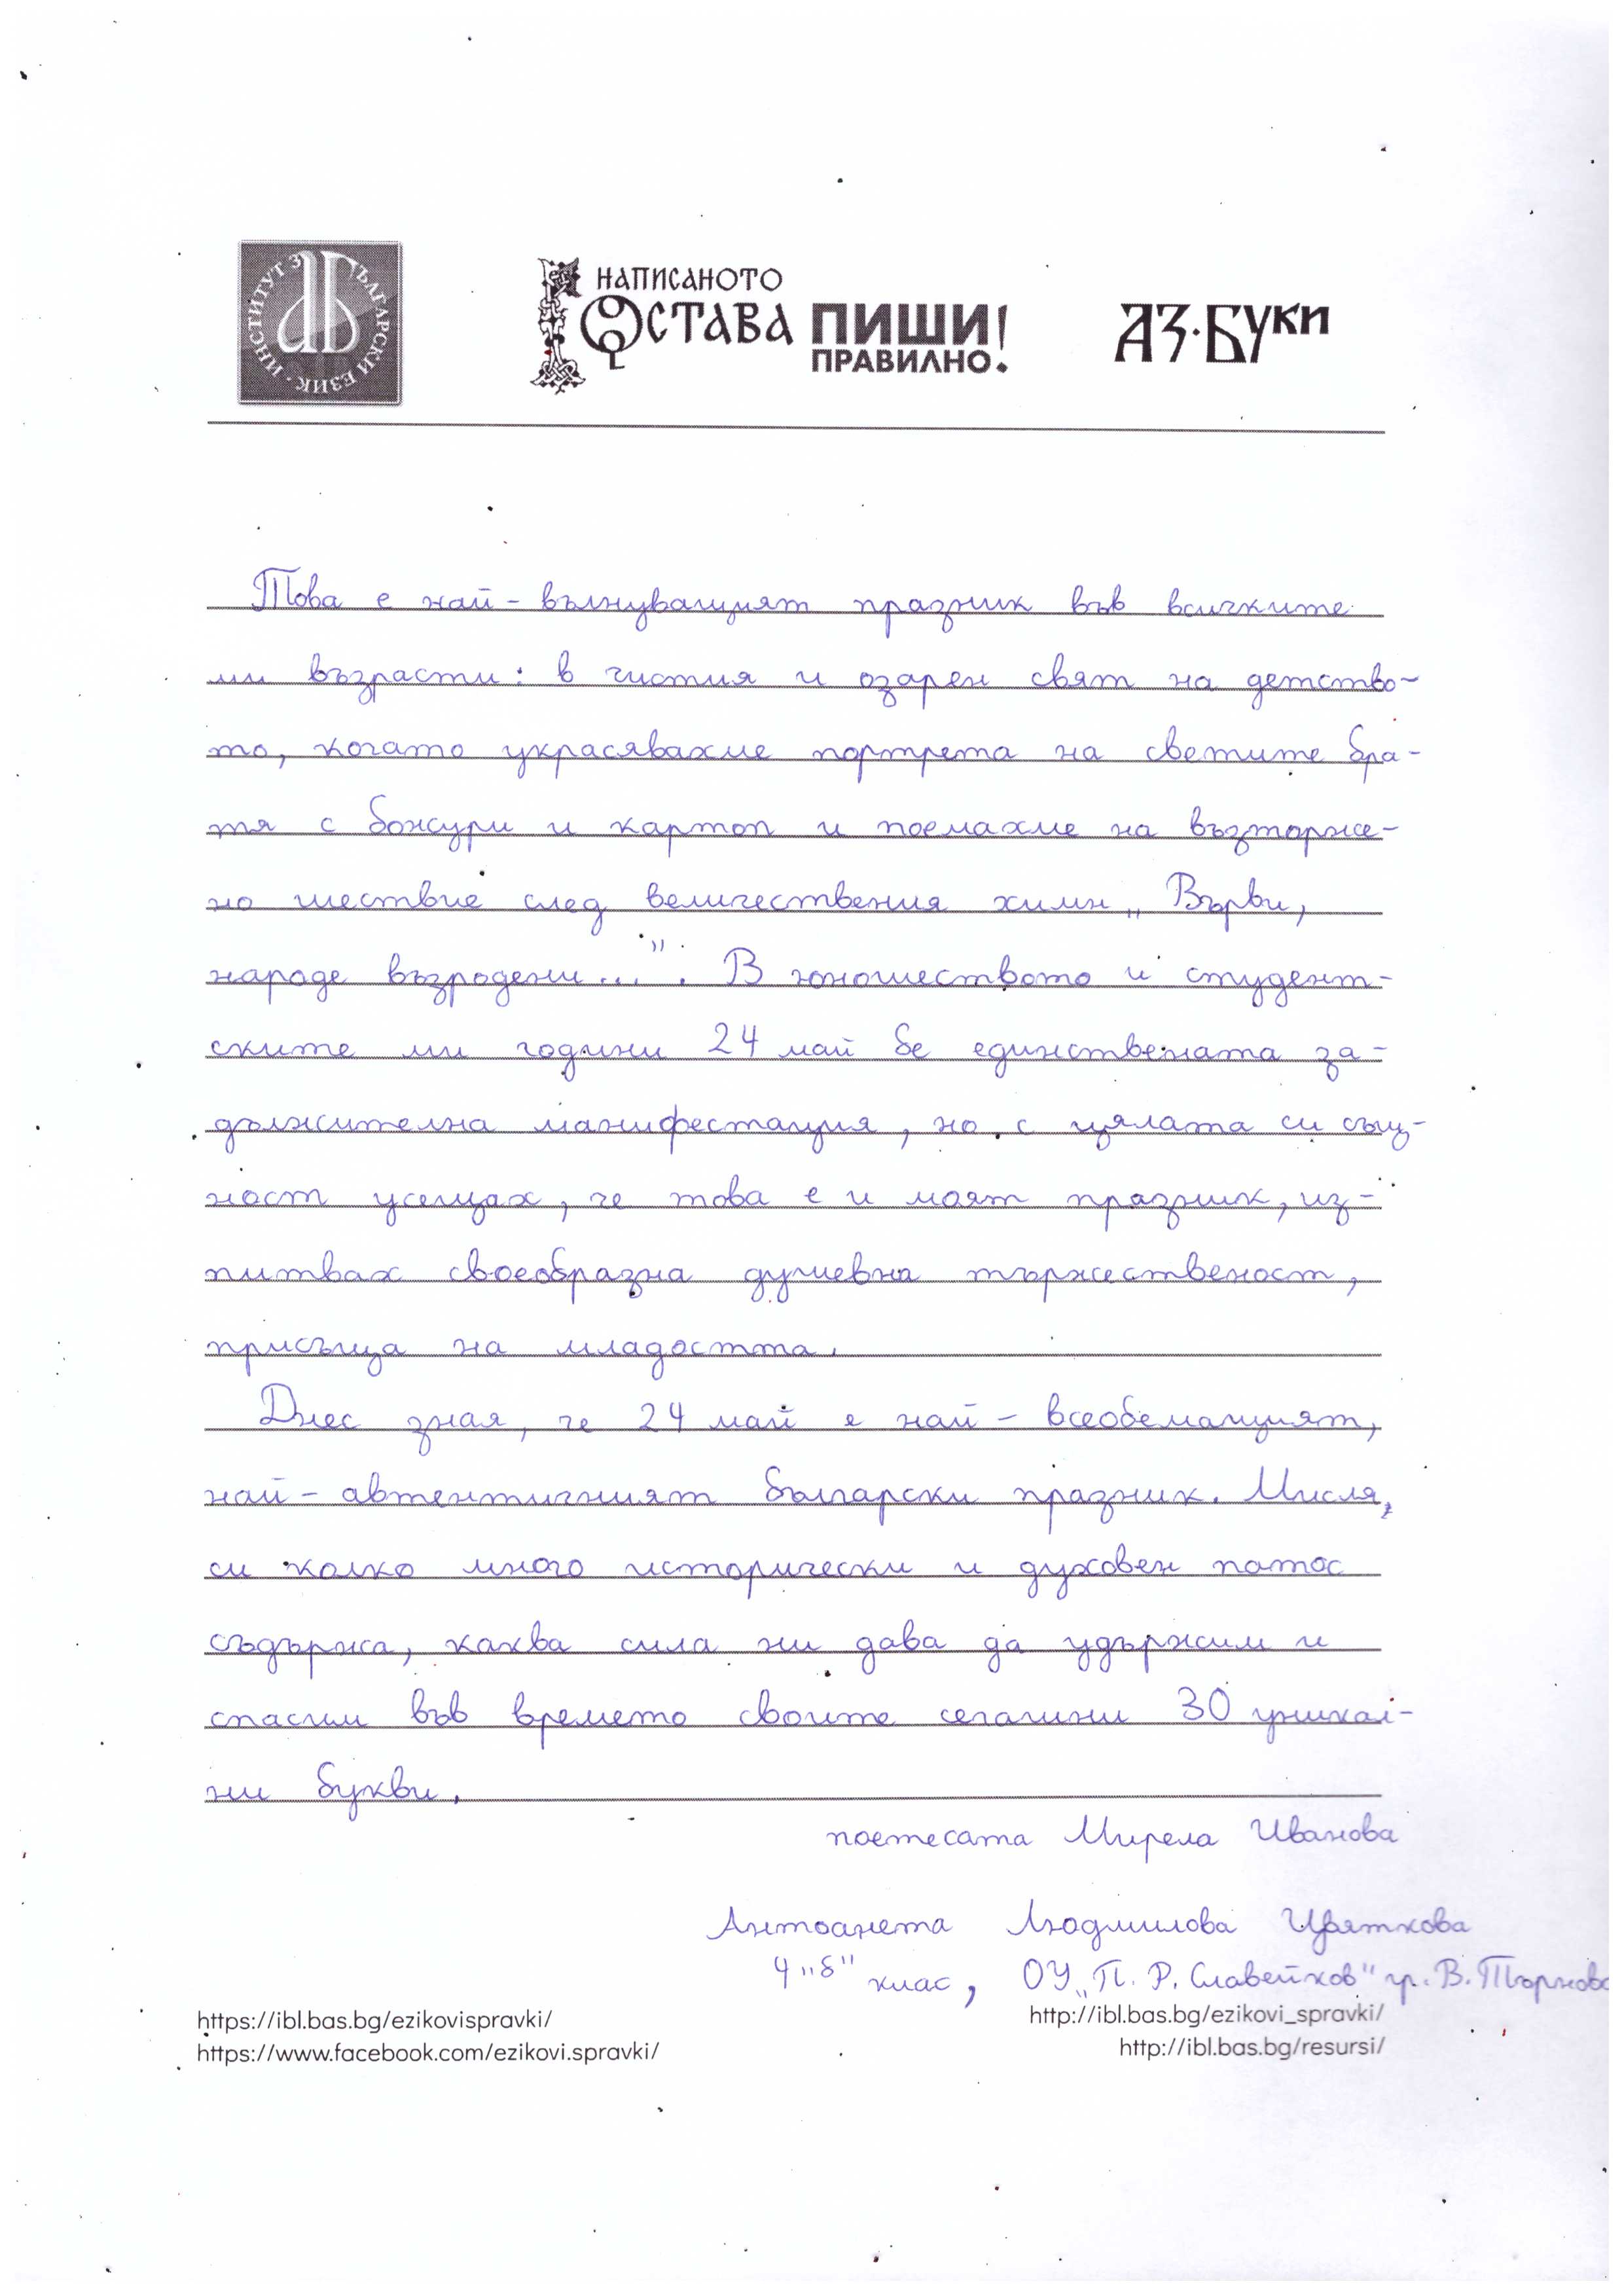 ИНСТИТУТ ЗА БЪЛГАРСКИ ЕЗИК
НАПИСАНОТО
ОСТАВА ПИШИ!
ПРАВИЛНО.
АЗ·БУКИ
Това е най-вълнуващият празник във всичките
ми възрасти: в чистия и озарен свят на детство-
то, когато украсявахме портрета на светите бра-
тя с божури и картоп и поемахме на възторже-
но шествие след величествения химн „Върви,
народе възродени...". В юношеството и студент-
ските ми години 24 май бе единствената за-
дължителна манифестация, но с цялата си същ-
ност усещах, че това е и моят празник, из-
питвах своеобразна душевна тържественост,
присъща на младостта.
Днес зная, че 24 май е най-всеобемащият,
най-автентичният български празник. Мисля,
си колко много исторически и духовен патос
съдържа, каква сила ни дава да удържим и
спасим във времето своите сегашни 30 уникал-
ни букви.
поетесата Мирела Иванова
Антоанета Людмилова Цвяткова
4 „б" клас, ОУ „П. Р. Славейков" гр. В. Търново
https://ibl.bas.bg/ezikovispravki/
http://ibl.bas.bg/ezikovi_spravki/
https://www.facebook.com/ezikovi.spravki/
http://ibl.bas.bg/resursi/